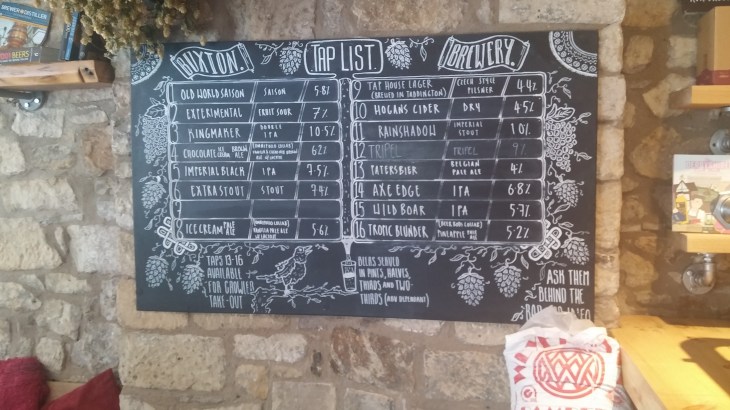 BUXTON. TAP LIST. BREWERY.
OLD WORLD SAISON SAISON 5.8%
EXPERIMENTAL FRUIT SOUR 7%
3 KINGMAKER DOUBLE IPA 10.5%
4 CHOCOLATE ICE CREAM BROWN ALE 6.2%
5 IMPERIAL BLACK IPA 7.5%
6 EXTRA STOUT STOUT 7.4%
ICE CREAM PALE ALE 5.6%
9 TAP HOUSE LAGER CZECH STYLE PILSNER 4.4%
(BREWED IN TADDINGTON)
10 HOGANS CIDER DRY 4.5%
11 RAINSHADOW IMPERIAL STOUT 10%
12 TRIPEL TRIPEL 9%
13 TATERSBIER BELGIAN PALE ALE 4%
14 AXE EDGE IPA 6.8%
15 WILD BOAR IPA 5.7%
16 TROPIC BLUNDER PINEAPPLE PALE ALE 5.2%
TAPS 13-16
AVAILABLE
FOR GROWLER
TAKE-OUT
BEERS SERVED
IN PINTS, HALVES,
THIRDS AND TWO-
THIRDS (ABV DEPENDANT)
ASK THEM
BEHIND THE
BAR FOR INFO